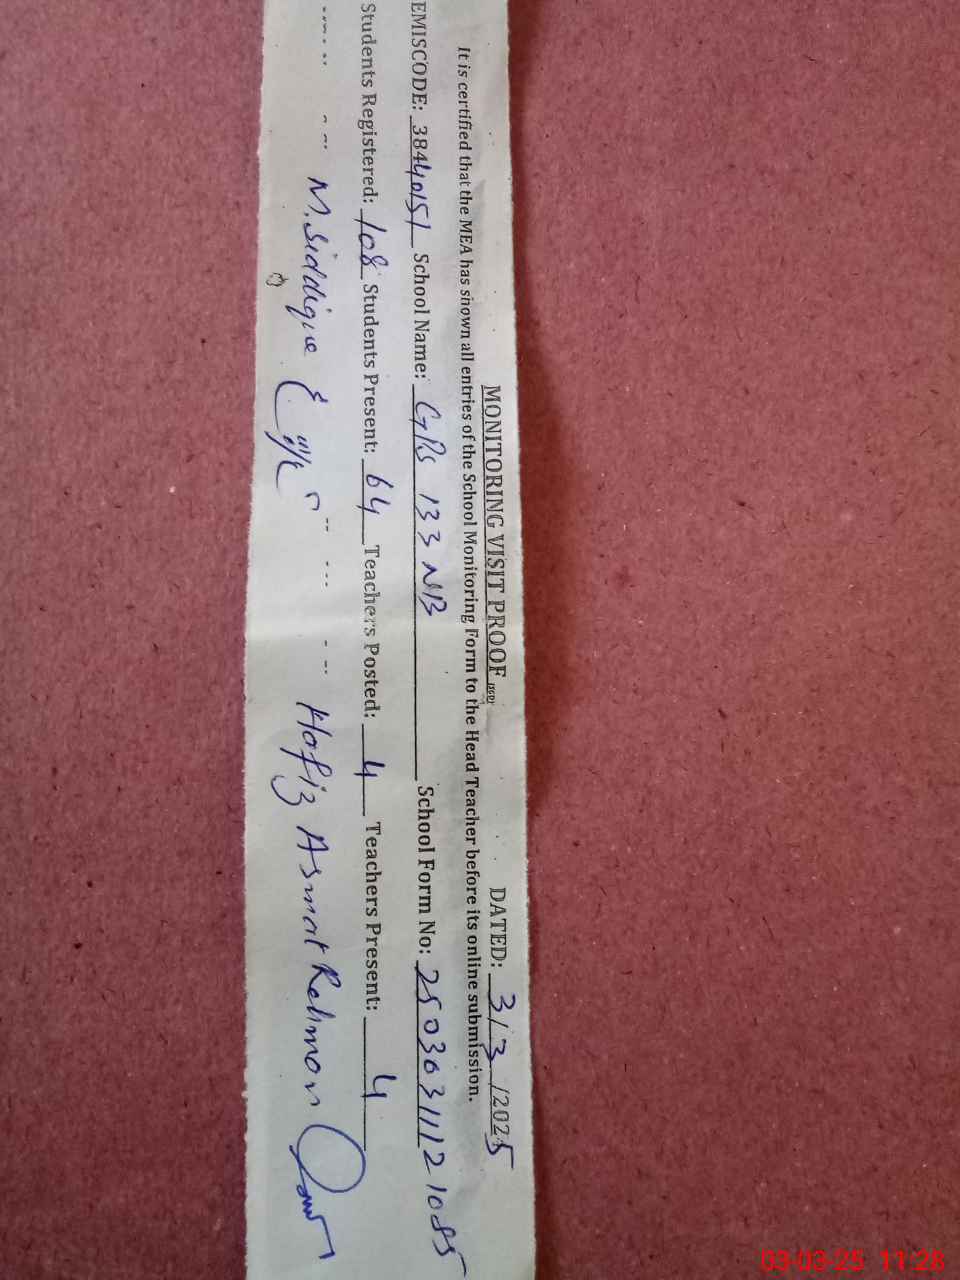 MONITORING VISIT PROOF DATED: 3/3/2025
It is certified that the MEA has shown all entries of the School Monitoring Form to the Head Teacher before its online submission.
EMISCODE: 38440151 School Name: GPS 133 NB School Form No: 25030311121085
Students Registered: 108 Students Present: 64 Teachers Posted: 4 Teachers Present: 4
M. Siddique Hafiz Asmat Rehman
03-03-25 11:28